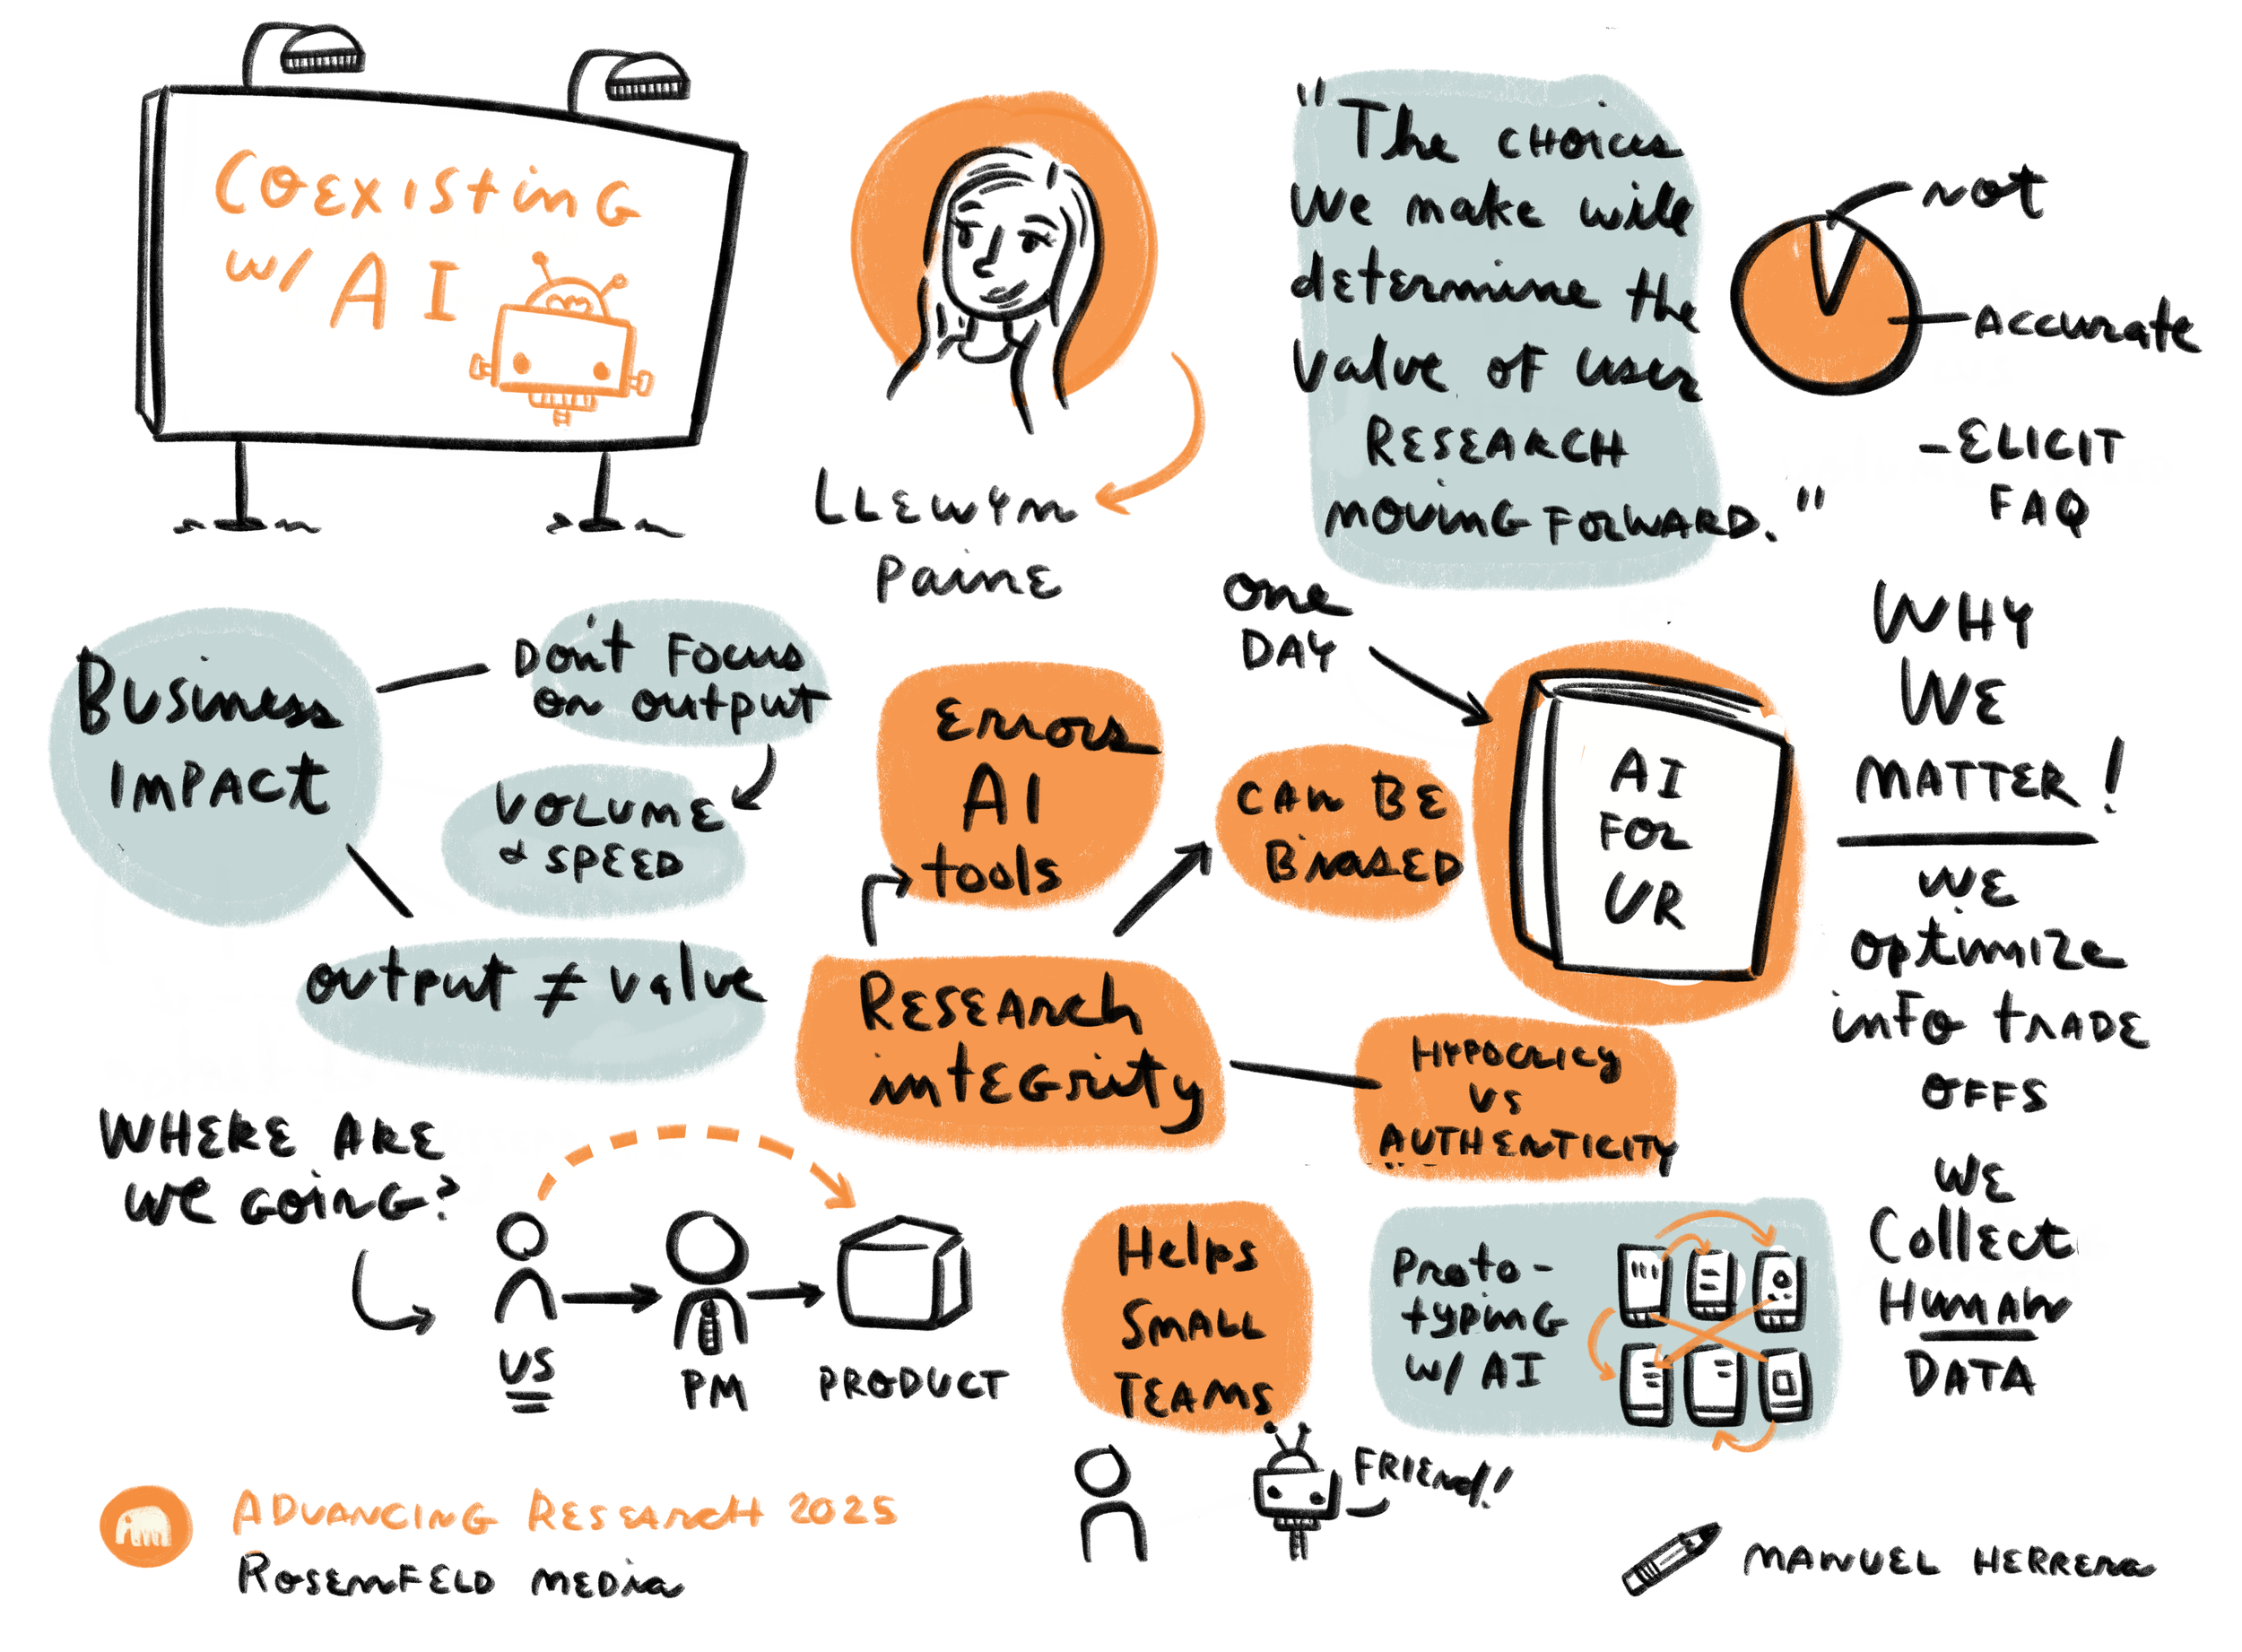 COEXISTING
W/ AI
LLEWYN
PAINE
"The CHOICES
We make will
determine the
value of user
RESEARCH
MOVING FORWARD."
NOT
Accurate
-ELICIT
FAQ
Business
IMPACT
DON'T FOCUS
on output
VOLUME
& SPEED
output ≠ value
Errors
AI
tools
CAN BE
BIASED
Research
integrity
HYPOCRICY
VS
AUTHENTICITY
one
DAY
AI
FOR
UR
WHY
WE
MATTER!
WE
optimize
info TRADE
OFFS
WE
Collect
HUMAN
DATA
WHERE ARE
WE GOING?
US
PM
PRODUCT
Helps
SMALL
TEAMS
FRIEND!
Proto-
typing
W/ AI
ADVANCING RESEARCH 2025
ROSENFELD MEDIA
MANUEL HERRERA